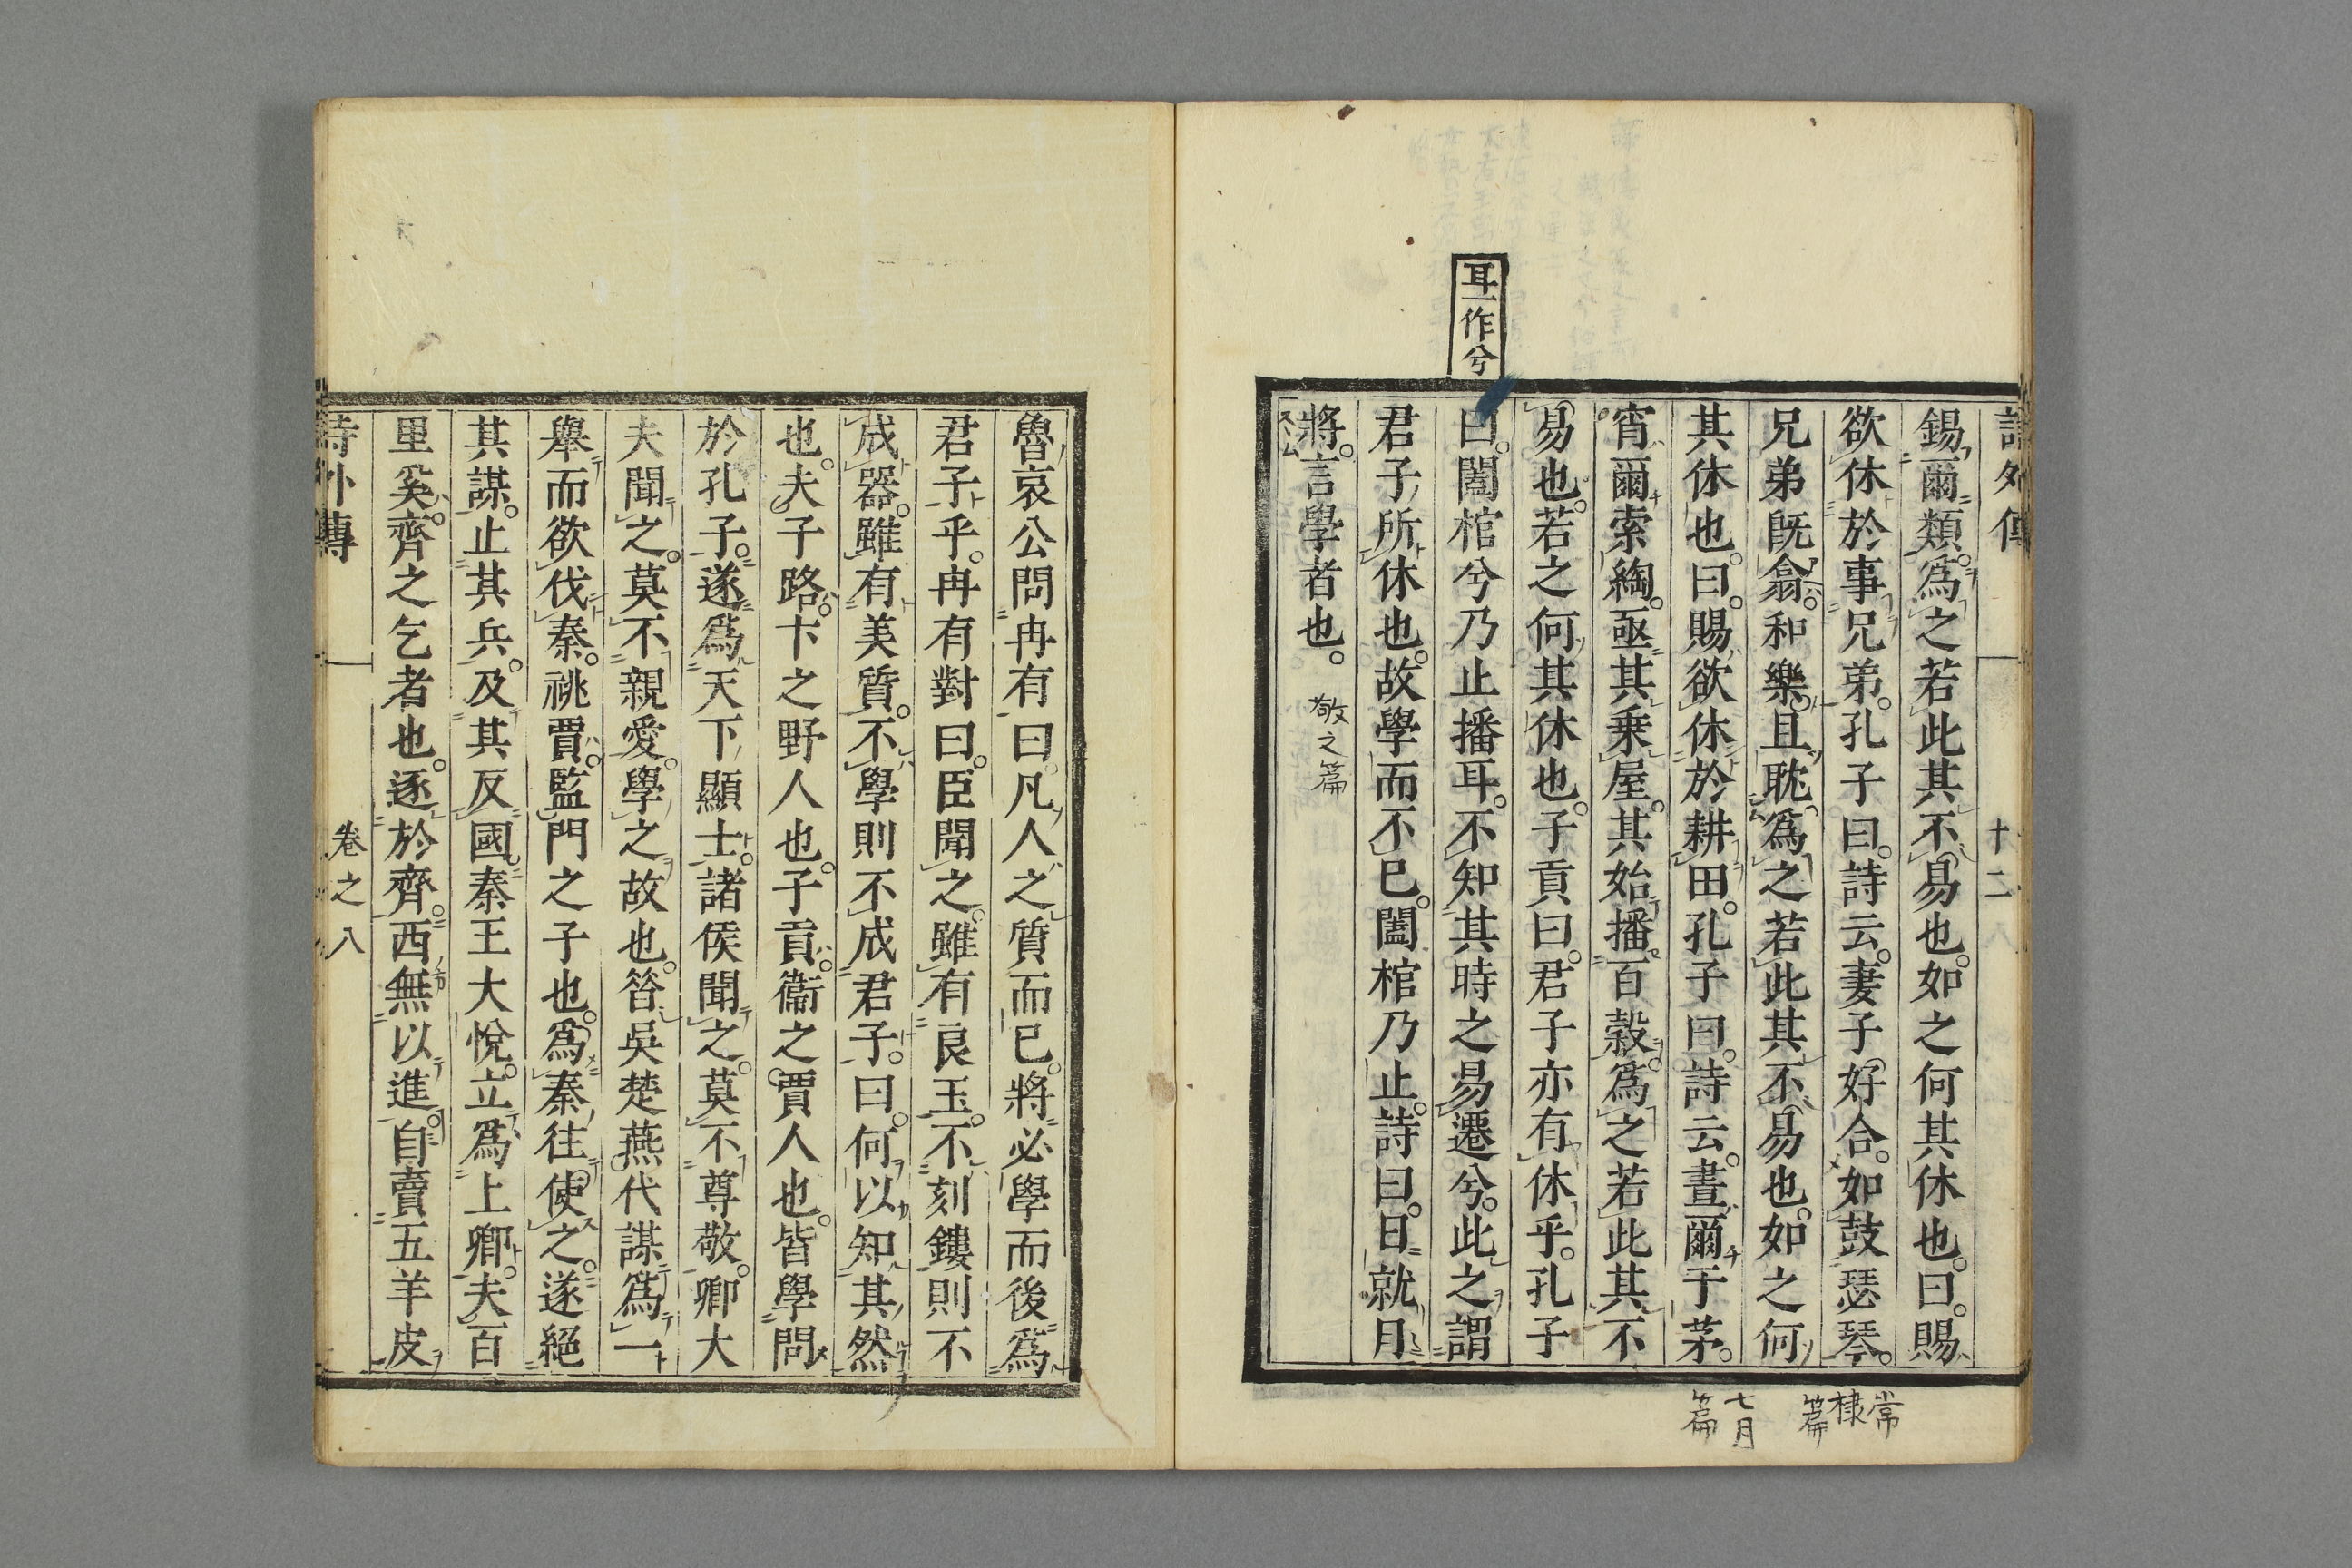 詩外傳
十二
錫爾類。爲之若此其不易也。如之何其休也。曰。賜
欲休於事兄弟。孔子曰。詩云。妻子好合。如鼓瑟琴。
兄弟既翕。和樂。且耽。爲之若此其不易也。如之何
其休也。曰。賜欲休於耕田。孔子曰。詩云。晝爾于茅。
宵爾索綯。亟其乗屋。其始播百穀。爲之若此其不
易也。若之何其休也。子貢曰。君子亦有休乎。孔子
曰。闔棺兮乃止播耳。不知其時之易遷兮。此之謂
君子所休也。故學而不已。闔棺乃止。詩曰。日就月
將。言學者也。
耳一作兮
常
棣
篇
七月
篇
敬之篇
魯哀公問冉有曰凡人之質而已。將必學而後爲
君子乎。冉有對曰。臣聞之。雖有良玉。不刻鏤則不
成器。雖有美質。不學則不成君子。曰。何以知其然
也。夫子路。卞之野人也。子貢。衞之賈人也。皆學問
於孔子。遂爲天下顯士。諸侯聞之。莫不尊敬。卿大
夫聞之。莫不親愛。學之故也。昝吳楚燕代謀爲一
舉而欲伐秦。祧賈。監門之子也。爲秦往使之。遂絕
其謀。止其兵。及其反國。秦王大悅。立爲上卿。夫百
里奚。齊之乞者也。逐於齊。西無以進。自賣五羊皮
詩外傳
卷之八